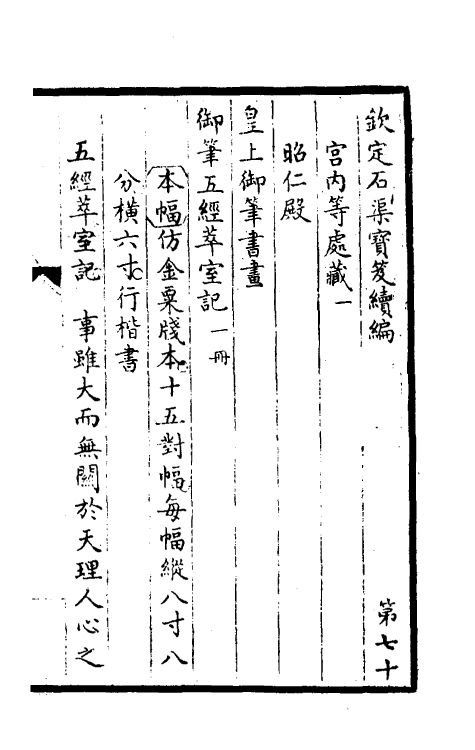 欽定石渠寶笈續編　第七十
宮內等處藏一
昭仁殿
皇上御筆書畫
御筆五經萃室記一冊
本幅仿金粟牋本十五對幅每幅縱八寸八
分橫六寸行楷書
五經萃室記　事雖大而無關於天理人心之